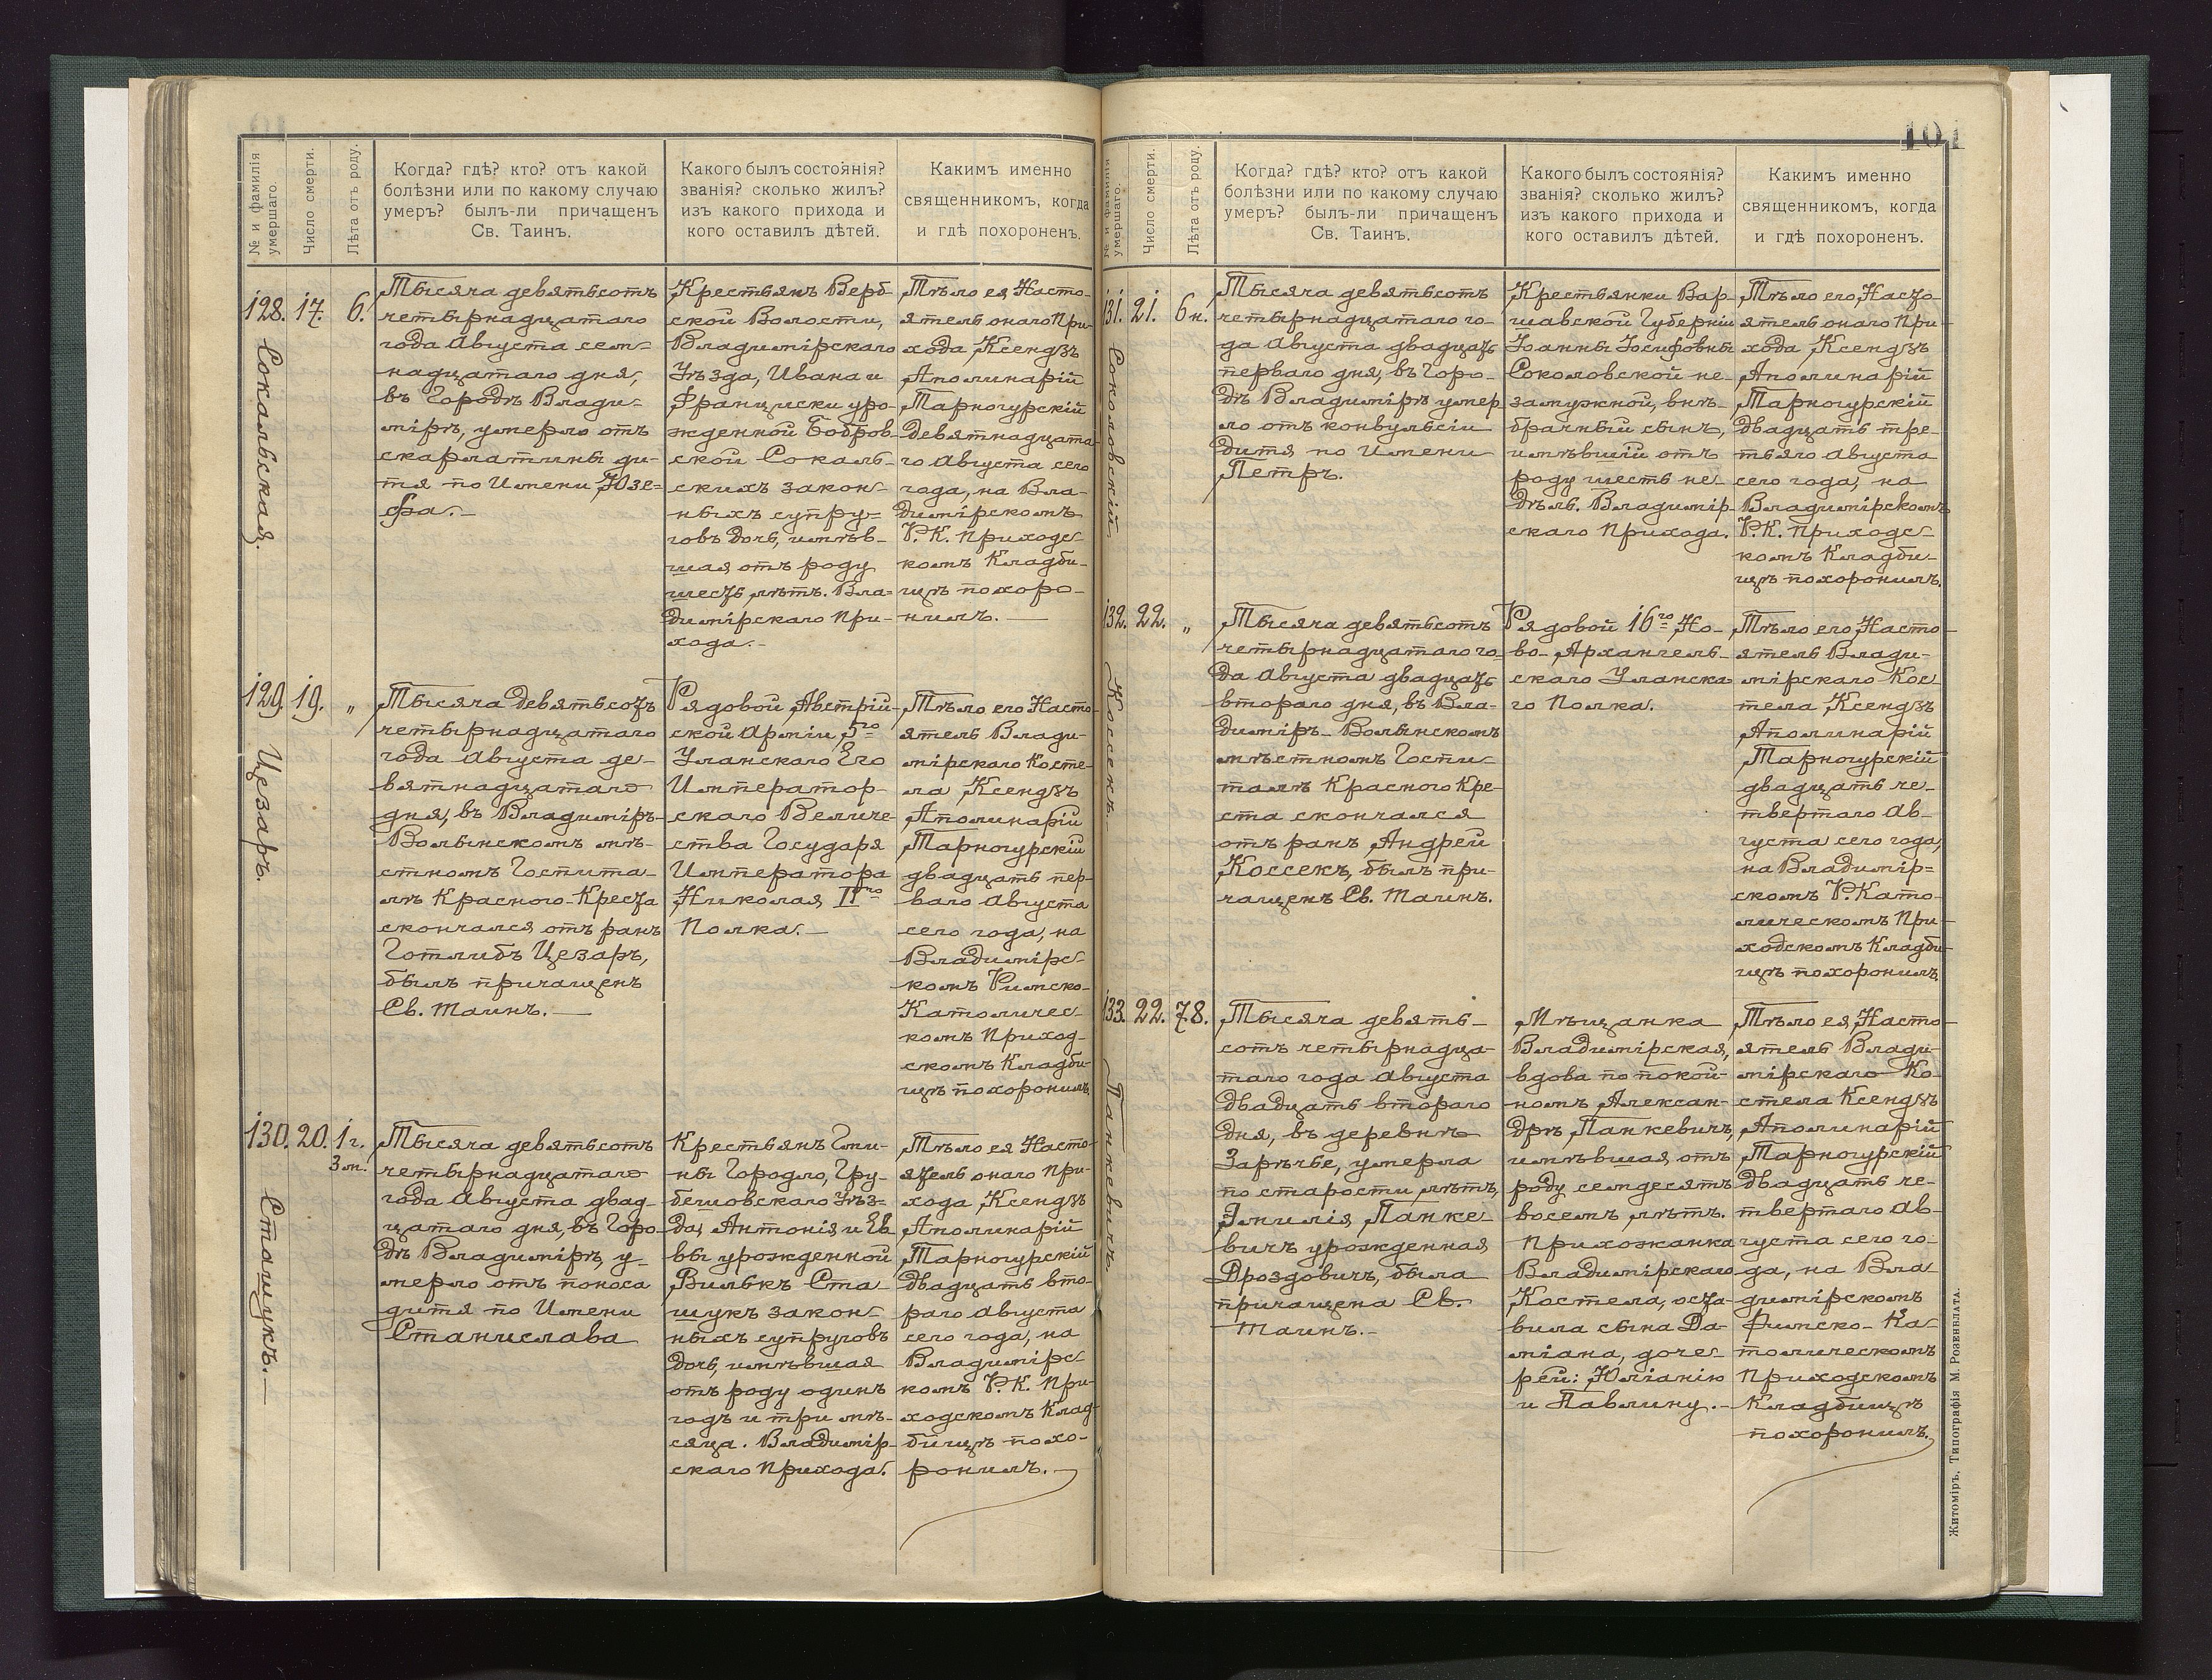 № и фамилія умершаго.
Число смерти.
Лѣта отъ роду.
Когда? гдѣ? кто? отъ какой
болѣзни или по какому случаю
умеръ? былъ-ли причащенъ
Св. Таинъ.
Какого былъ состоянія?
званія? сколько жилъ?
изъ какого прихода и
кого оставилъ дѣтей.
Какимъ именно
священникомъ, когда
и гдѣ похороненъ.
128. 17. 6.
Сокальская.
Тысяча девятьсотъ
четырнадцатаго
года Августа сем-
надцатаго дня,
въ Городѣ Влади-
мірѣ, умерло отъ
скарлатины ди-
тя по Имени Юзе-
фа.-
Крестьянъ Верб-
ской Волости,
Владимірскаго
Уѣзда, Ивана и
Франциски уро-
жденной Бобров-
ской Сокаль-
скихъ закон-
ныхъ супру-
говъ дочь, имѣв-
шая отъ роду
шесть лѣтъ. Вла-
димірскаго При-
хода.-
Тѣло ея, Насто-
ятель онаго При-
хода Ксендзъ
Аполинарій
Тарногурскій
девятнадцата-
го Августа сего
года, на Вла-
димірскомъ
Р.К. Приходс-
комъ Кладби-
щѣ похоро-
нилъ.-
129. 19. „
Цезаръ.
Тысяча девятьсотъ
четырнадцатаго
года Августа де-
вятнадцатаго
дня, въ Владимірѣ-
Волынскомъ мѣ-
стномъ Госпита-
лѣ Красного-Креста
скончался отъ ранъ
Готлибъ Цезаръ,
былъ причащенъ
Св. Таинъ.-
Рядовой Австрій-
ской Арміи, 5го
Уланскаго Его
Император-
скаго Величе-
ства Государя
Императора
Николая IIго
Полка.-
Тѣло его Насто-
ятель Влади-
мірскаго Косте-
ла Ксендзъ
Аполинарій
Тарногурскій
двадцать пер-
ваго Августа
сего года, на
Владимірс-
комъ Римско-
Католичес-
комъ Приход-
скомъ Кладби-
щѣ похоронилъ.
130. 20. 1 г.
3 м.
Сташукъ.-
Тысяча девятьсотъ
четырнадцатаго
года Августа двад-
цатаго дня, въ Горо-
дѣ Владимірѣ, у-
мерло отъ поноса
дитя по Имени
Станислава
Крестьянъ Гми-
ны Городло, Гру-
бешовскаго Уѣз-
да, Антонія и Ев-
вы урожденной
Вилькъ Ста-
шукъ закон-
ныхъ супруговъ
дочь, имѣвшая
отъ роду одинъ
годъ и три мѣ-
сяца. Владимір-
скаго Прихода.
Тѣло ея Насто-
ятель онаго При-
хода Ксендзъ
Аполинарій
Тарногурскій
двадцать вто-
раго Августа
сего года, на
Владимірс-
комъ Р.К. При-
ходскомъ Клад-
бищѣ похо-
ронилъ.-
101
№ и фамилія умершаго.
Число смерти.
Лѣта отъ роду.
Когда? гдѣ? кто? отъ какой
болѣзни или по какому случаю
умеръ? былъ-ли причащенъ
Св. Таинъ.
Какого былъ состоянія?
званія? сколько жилъ?
изъ какого прихода и
кого оставилъ дѣтей.
Какимъ именно
священникомъ, когда
и гдѣ похороненъ.
131. 21. 6 н.
Соколовскій
Тысяча девятьсотъ
четырнадцатаго го-
да Августа двадцать
перваго дня, въ Горо-
дѣ Владимірѣ умер-
ло отъ конвульсіи
дитя по Имени
Петръ.
Крестьянки Вар-
шавской Губерніи
Іоанны Іосифовны
Соколовской не-
замужной, внѣ-
брачный сынъ,
имѣвшій отъ
роду шесть не-
дѣль. Владимір-
скаго Прихода.
Тѣло его, Насто-
ятель онаго При-
хода Ксендзъ
Аполинарій
Тарногурскій
двадцать тре-
тьяго Августа
сего года, на
Владимірскомъ
Р.К. Приходс-
комъ Кладби-
щѣ похоронилъ.
132. 22. „
Коссекъ.-
Тысяча девятьсотъ
четырнадцатаго го-
да Августа двадцать
втораго дня, въ Вла-
димірѣ-Волынскомъ
мѣстномъ Госпи-
талѣ Красного Кре-
ста скончался
отъ ранъ Андрей
Коссекъ, былъ при-
чащенъ Св. Таинъ.
Рядовой 16го Но-
во-Архангель-
скаго Уланска-
го Полка.
Тѣло его, Насто-
ятель Влади-
мірскаго Кос-
тела Ксендзъ
Аполинарій
Тарногурскій
двадцать че-
твертаго Ав-
густа сего года,
на Владимір-
скомъ Р.Като-
лическомъ При-
ходскомъ Кладби-
щѣ похоронилъ.
133. 22. 78.
Панкевичъ.
Тысяча девять-
сотъ четырнадца-
таго года Августа
двадцать втораго
дня, въ деревнѣ
Зарѣчье, умерла
по старости лѣтъ,
Эмилія Панке-
вичъ урожденная
Дроздовичъ, была
причащена Св.
Таинъ.-
Мѣщанка
Владимірская,
вдова по покой-
номъ Алексан-
дрѣ Панкевичъ,
имѣвшая отъ
роду семдесятъ
восемъ лѣтъ.
Прихожанка
Владимірскаго
Костела, оста-
вила сына Да-
міана, доче-
рей: Юліанію
и Павлину.-
Тѣло ея, Насто-
ятель Влади-
мірскаго Ко-
стела Ксендзъ
Аполинарій
Тарногурскій
двадцать че-
твертаго Ав-
густа сего го-
да, на Вла-
димірскомъ
Римско-Ка-
толическомъ
Приходскомъ
Кладбищѣ
похоронилъ.
Житоміръ, Типографія М. Розенблата.